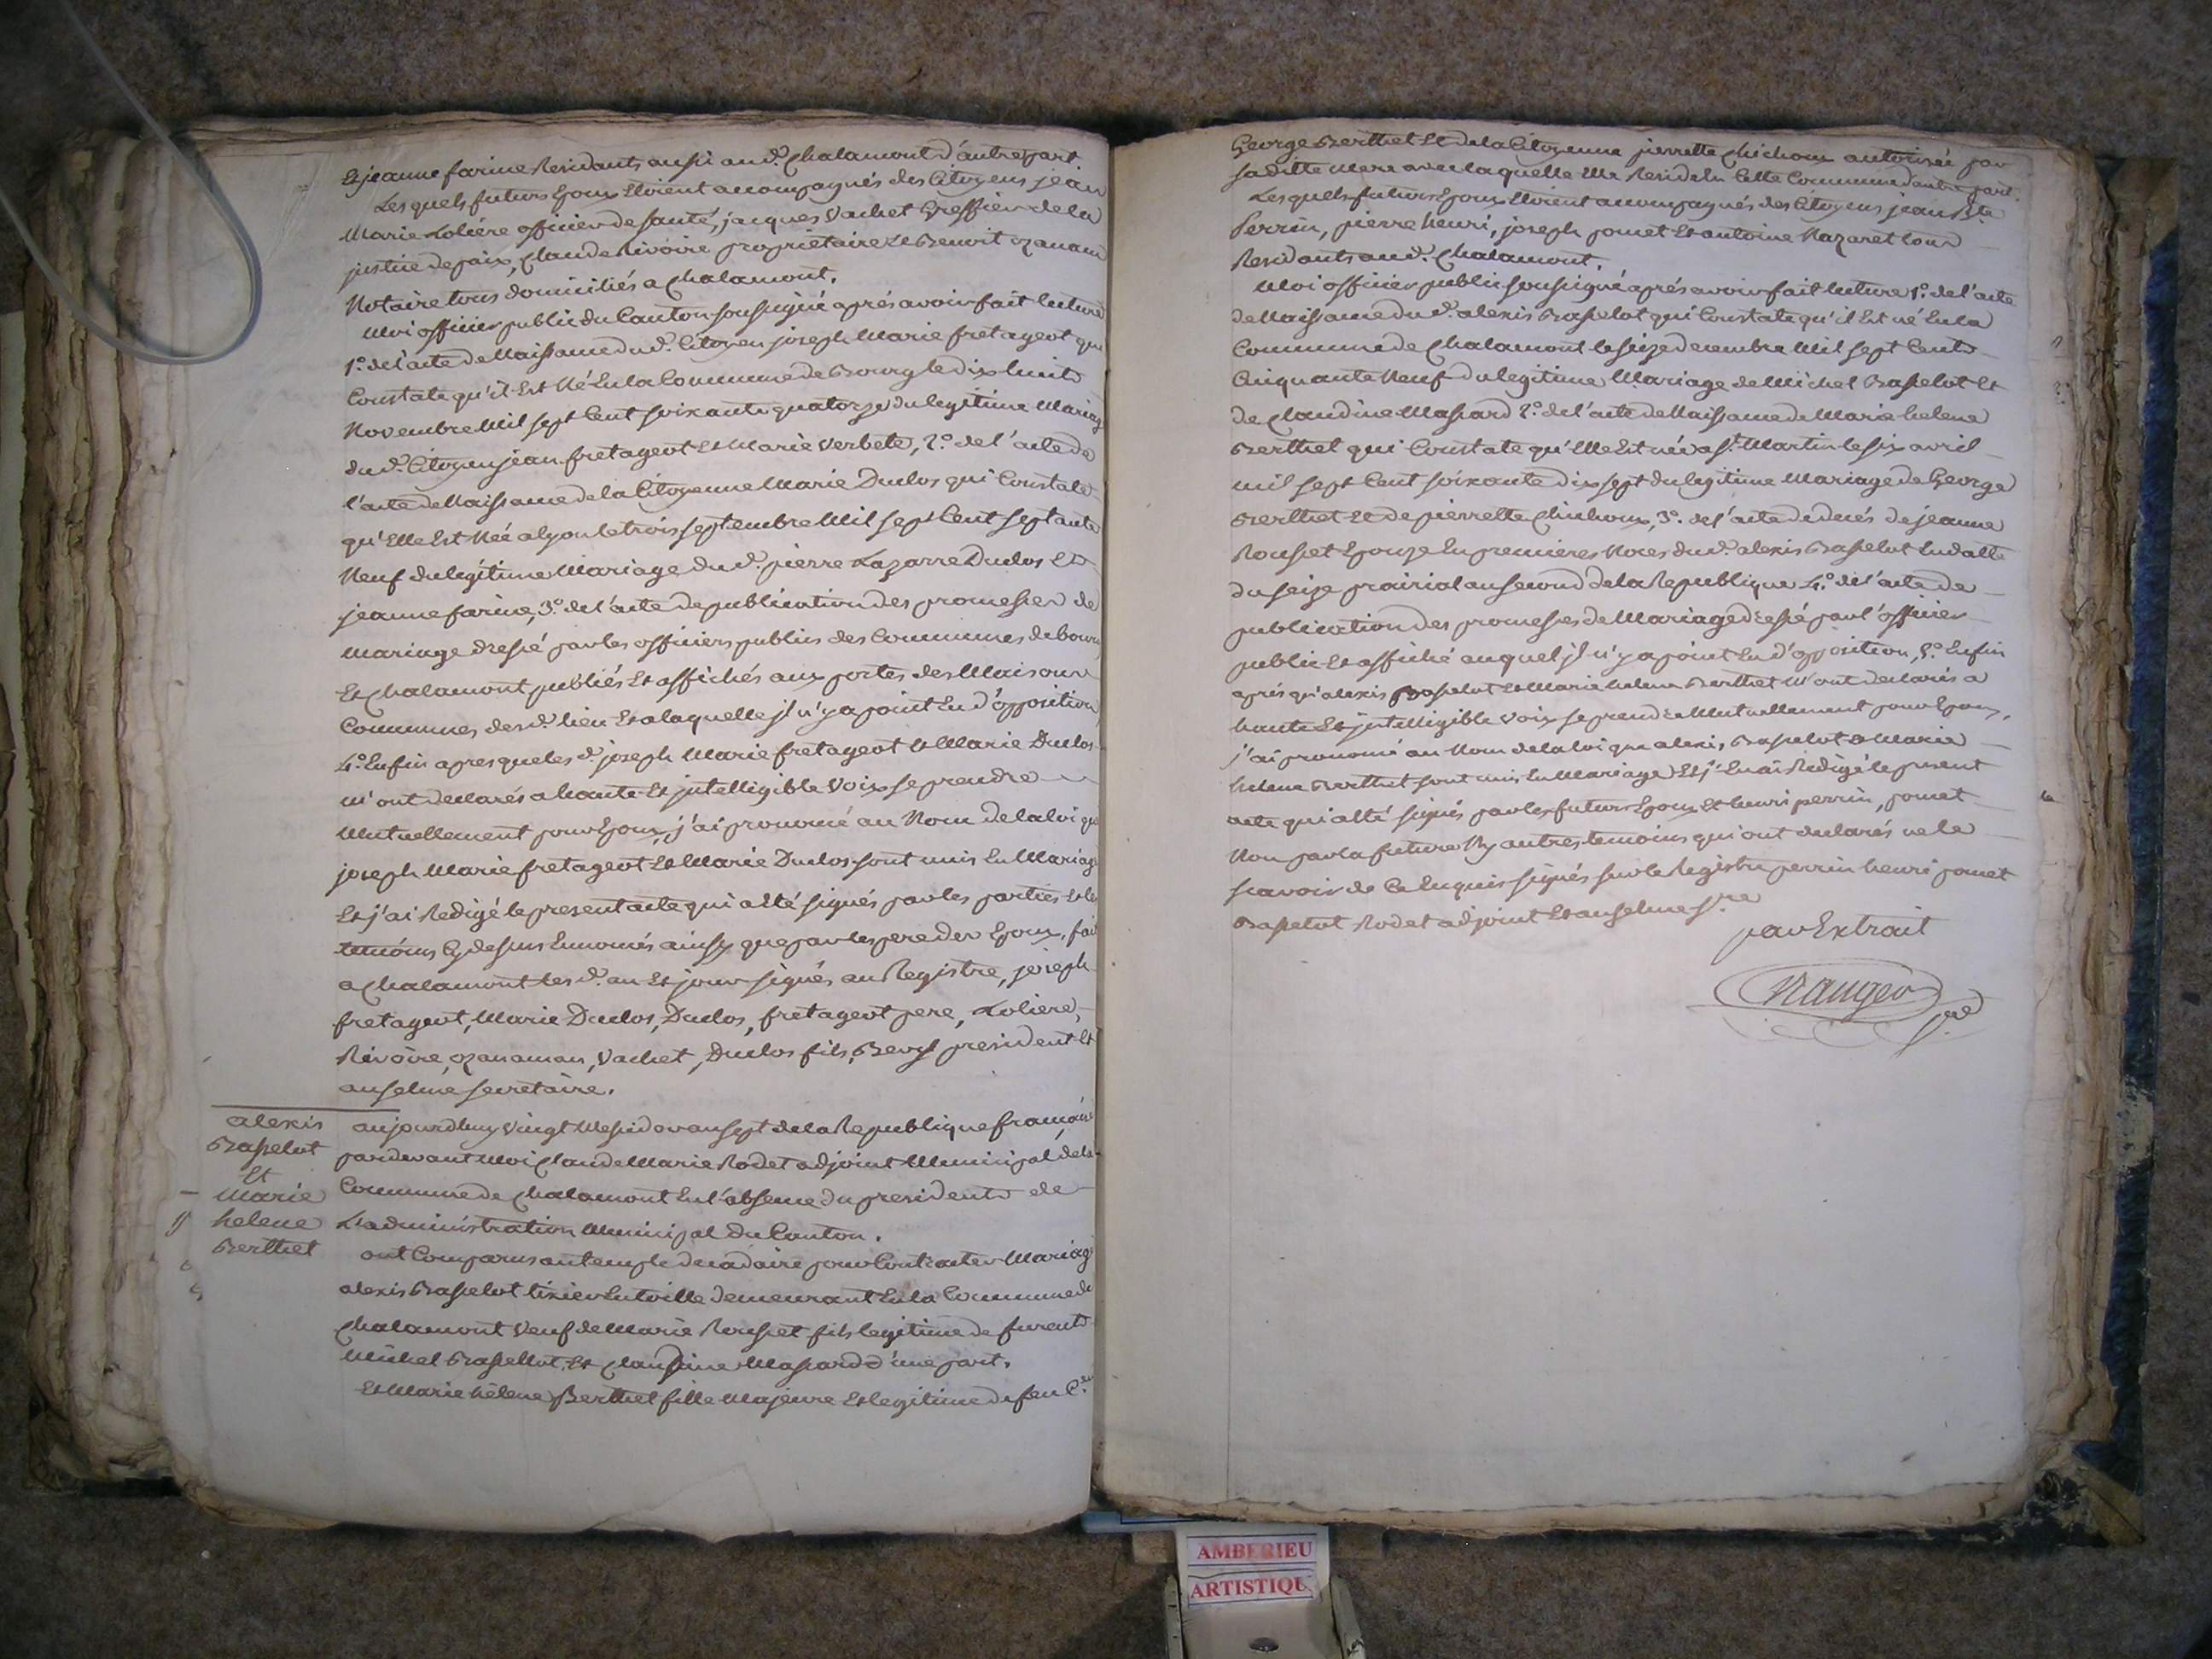 Et jeanne farine Residants aussi aud.t Chalamont d'autre part.
Lesquels futurs Epoux Etoient accompagnés des Citoyens jean
Marie Loliére officier de santé, jacques Vachet Greffier de la
justice de paix, Claude Rivoire propriétaire Et Benoit ozanam
Notaire tous domiciliés a Chalamont.
Moi officier public du Canton soussigné aprés avoir fait lecture
1.° de l'acte de Naissance dud.t Citoyen joseph Marie fretageot qui
Constate qu'il Est Né En la Commune de Bourg le dix huit
Novembre Mil sept Cent soixante quatorze du legitime Mariage
dud.t Citoyen jean fretageot Et Marie Verbete, 2.° de l'acte de
l'acte de Naissance de la Citoyenne Marie Duclos qui Constate
qu'Elle Est Née a lyon le trois septembre Mil sept Cent septante
Neuf du legitime Mariage dud.t pierre Lazarre Duclos Et
jeanne farine, 3.° de l'acte de publication des promesses de
Mariage dressé par les officiers publics des Communes de bourg
Et Chalamont publiés Et affichés aux portes des Maisons
Communes desd.t lieu Et a laquelle jl n'y a point Eu d'opposition
4.° Enfin apres que les d.t joseph Marie fretageot Et Marie Duclos
m'ont declarés a haute Et jntelligible Voix se prendre
Mutuellement pour Epoux, j'ai prononcé au Nom de la loi que
joseph Marie fretageot Et Marie Duclos sont unis En Mariage
Et j'ai Redigé le present acte qui a Eté signés par les parties Et les
temoins Cy dessus Ennoncés ainsy que par les pere des Epoux, fait
a Chalamont les d.t an Et jour signés au Registre, joseph
fretageot, Marie Duclos, Duclos, fretageot pere, Loliere,
Rivoire, ozanaman, Vachet, Duclos fils, president Et
anselme secretaire.
alexis
Basselot
Et
Marie
helene
Berthet
aujourdhuy Vingt Messidor an sept de la Republique française
pardevant Moi Claude Marie Rodet adjoint Municipal de la
Commune de Chalamont En l'absence du president de
L'administration Municipal du Canton.
ont Comparus au temple decadaire pour Contracter Mariage
alexis Basselot tixier En toille demeurant En la Commune de
Chalamont Veuf de Marie Rousset fils legitime de furent
Michel Basselot, Et Claudine Massard d'une part.
Et Marie héléne Berthet fille Majeure Et legitime de feu C.en
George Berthet Et de la Citoyenne pierrette Chichoux autorisée par
sa ditte Mere avec laquelle Elle Reside En Cette Commune d'autre part.
Lesquels futurs Epoux Etoient accompagnés des Citoyens jean B.te
Perrin, pierre henri, joseph pomet Et antoine Nazaret tous
Residants aud.t Chalamont.
Moi officier public soussigné aprés avoir fait lecture 1.° de l'acte
de Naissance dud.t alexis Basselot qui Constate qu'il Est né En la
Commune de Chalamont le seize decembre Mil sept Cent
Cinquante Neuf du legitime Mariage de Michel Basselot Et
de Claudine Massard 2.° de l'acte de Naissance de Marie helene
Berthet qui Constate qu'Elle Est née a s.t Martin le six avril
mil sept Cent soixante dix sept du legitime Mariage de George
Berthet Et de pierrette Chichoux, 3.° de l'acte de decés de jeanne
Rousset Epouze En premieres Noces dud.t alexis Basselot En datte
du seize prairial an second de la Republique 4.° de l'acte de
publication des promesses de Mariage dressé par l'officier
public Et affiché auquel jl n'y a point Eu d'opposition, 5.° Enfin
aprés qu'alexis Basselot Et Marie helene Berthet M'ont declarés a
haute Et jntelligible Voix se prendre Mutuellement pour Epoux,
j'ai prononcé au Nom de la loi que alexis Basselot & Marie
helene Berthet sont unis En Mariage Et j'En ai Redigé le present
acte qui a Eté signés par les futurs Epoux Et henri perrin, pomet
Non par la future Ny autres temoins qui ont declarés ne le
scavoir de Ce Enquis signés sur le Registre perrin henri pomet
Basselot Rodet adjoint Et anselme s.re
par Extrait
Naugér
s.re
AMBERIEU
ARTISTIQU